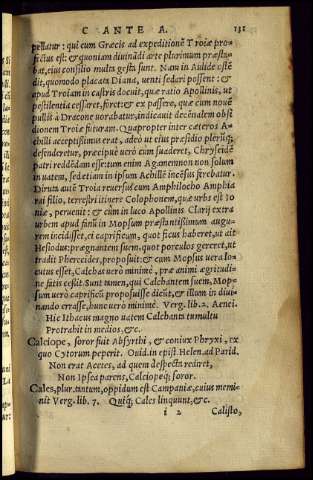 C ANTE A. 131
pellatur: qui cum Græcis ad expeditionẽ Troiæ pro-
fectus est: & quoniam diuinãdi arte plurimum præsta-
bat, eius consilio multa gesta sunt. Nam in Aulide ostẽ
dit, quomodo placata Diana, uenti sedari possent: &
apud Troiam in castris docuit, quæ ratio Apollinis, ut
pestilentia cessaret, foret: & ex passere, quæ cum nouẽ
pullis à Dracone uorabatur, indicauit decẽnalem obsi
dionem Troiæ futuram. Quapropter inter cæteros A-
chilli acceptissimus erat, adeò ut eius præsidio plerũq;
defenderetur, præcipuè uerò cum suaderet, Chryseidẽ
patri reddẽdam esse: tum enim Agamemnon non solùm
in uatem, sed etiam in ipsum Achillẽ incẽsus ferebatur.
Diruta autẽ Troia reuersus cum Amphilocho Amphia
rai filio, terrestri itinere Colophonem, quæ urbs est Io
niæ, peruenit: & cùm in luco Apollinis Clarij extra
urbem apud fanũ in Mopsum præstantissimum augu-
rem incidisset, et caprificum, quot ficus haberet, ut ait
Hesiodus: prægnantem suem, quot porculos gereret, ut
tradit Pherecides, proposuit: & cum Mopsus uera lo-
cutus esset, Calchas uerò minimè, præ animi ægritudi-
ne fatis cessit. Sunt tamen, qui Calchantem suem, Mop-
sum uerò caprificũ proposuisse dicũt, & illum in diui-
nando errasse, hunc uerò minimè. Verg. lib. 2. Aenei.
Hic Ithacus magno uatem Calchanta tumultu
Protrahit in medios, &c.
Calciope, soror fuit Absyrthi, & coniux Phryxi, ex
quo Cytorum peperit. Ouid. in epist. Helen. ad Parid.
Non erat Aeetes, ad quem despecta rediret,
Non Ipsea parens, Calciopeq; soror.
Cales, plur. tantum, oppidum est Campaniæ, cuius memi-
nit Verg. lib. 7. Quiq; Cales linquunt, &c.
i 2 Calisto,